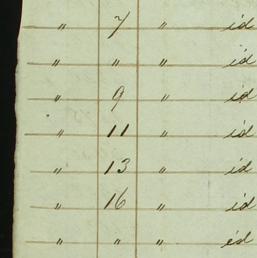 " 7 " id
" " " id
" 9 " id
" 11 " id
" 13 " id
" 16 " id
" " " id